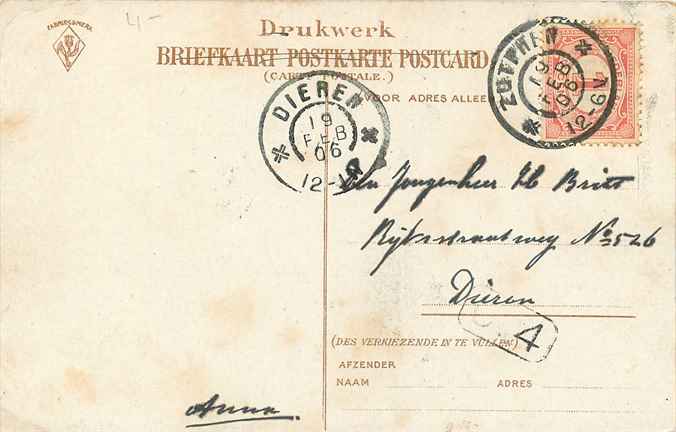 FABRIEKSMERK
4-
Drukwerk
BRIEFKAART POSTKARTE POSTCARD
(CARTE POSTALE.)
VOOR ADRES ALLEEN
ZUTPHEN
19
FEB
06
12-6V
DIEREN
19
FEB
06
12-
Den Jongenheer
Rijksstraatweg No 526
Dieren
4
(DES VERKIEZENDE IN TE VULLEN)
AFZENDER
NAAM
ADRES
Anna